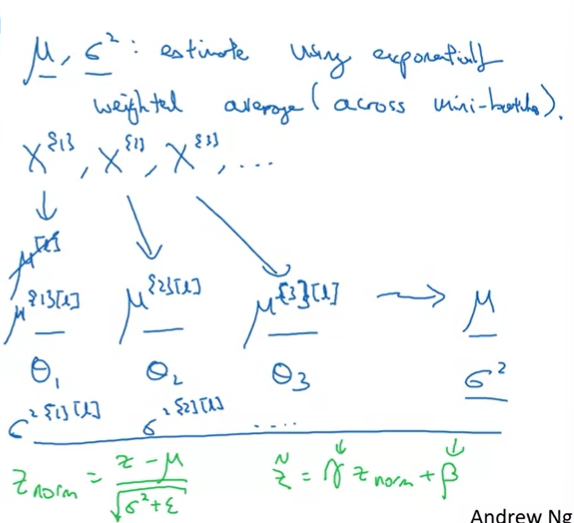 μ, σ²: estimate using exponentially
weighted average (across mini-batches).
X^{1}, X^{2}, X^{3}, ...
μ^[l]
μ^{1}[l] μ^{2}[l] μ^{3}[l] → μ
θ₁ θ₂ θ₃ σ²
σ²^{1}[l] σ²^{2}[l] ....
z_norm = (z - μ) / √(σ² + ε) z̃ = γ z_norm + β
Andrew Ng